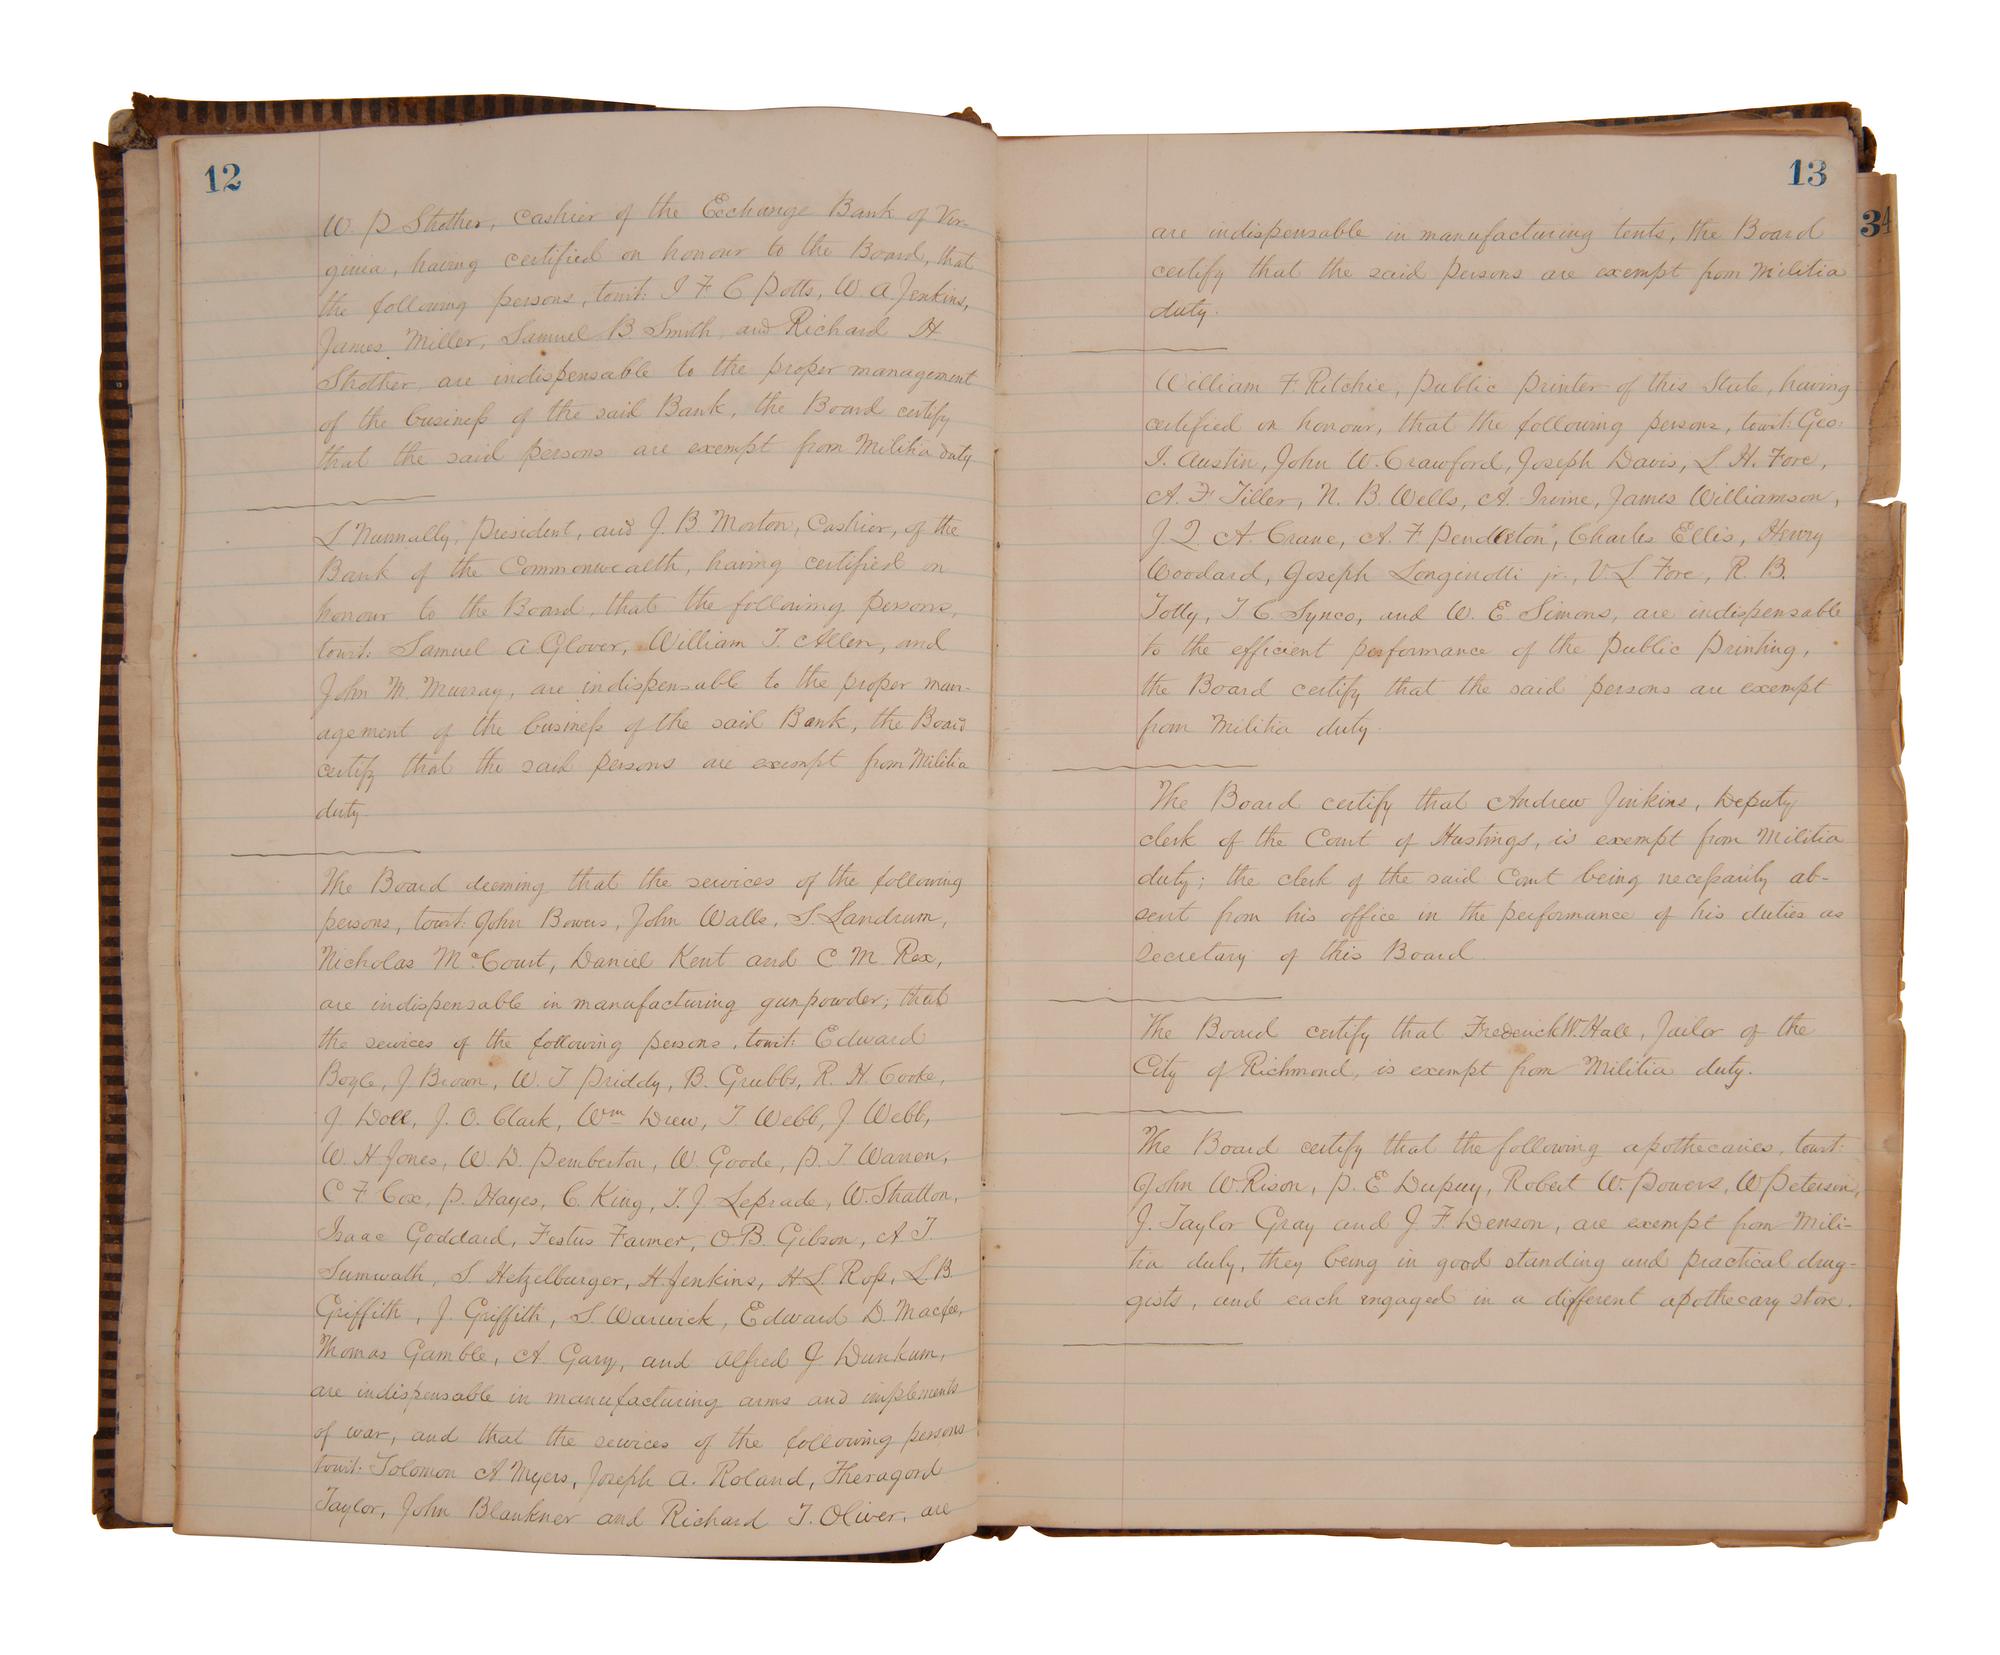 12
W. P Strother, Cashier of the Exchange Bank of Vir-
ginia, having certified on honour to the Board, that
the following persons, towit: J F C Potts, W. A Jenkins,
James Miller, Samuel B Smith, and Richard H
Strother, are indispensable to the proper management
of the business of the said Bank, the Board certify
that the said persons are exempt from Militia duty.
L Nunnally, President, and J. B. Morton, Cashier, of the
Bank of the Commonwealth, having certified on
honour to the Board, that the following persons,
towit: Samuel A Glover, William T. Allen, and
John M. Murray, are indispensable to the proper man-
agement of the business of the said Bank, the Board
certify that the said persons are exempt from Militia
duty.
The Board deeming that the services of the following
persons, towit: John Bowers, John Walls, S. Landrum,
Nicholas McCourt, Daniel Kent and C M Rex,
are indispensable in manufacturing gunpowder; that
the services of the following persons, towit: Edward
Bogle, J Brown, W. T Priddy, B. Grubbs, R. H. Cooke,
J Doll, J. O. Clark, Wm Drew, T. Webb, J Webb,
W. H Jones, W. D Pemberton, W. Goode, P. T Warren,
C F Cox, P. Hayes, C. King, T. J. Leprade, W. Stratton,
Isaac Goddard, Festus Farmer, O B. Gibson, A T.
Sumwath, S. Hetzelburger, H Jenkins, H. L. Ross, L B.
Griffith, J. Griffith, S. Warwick, Edward D. Macfee,
Thomas Gamble, A Gary, and Alfred J Dunkum,
are indispensable in manufacturing arms and implements
of war, and that the services of the following persons
towit: Solomon A Myers, Joseph A. Roland, Theragord
Taylor, John Blankner and Richard T. Oliver, are
13
34
are indispensable in manufacturing tents, the Board
certify that the said persons are exempt from Militia
duty.
William F. Ritchie, public printer of this State, having
certified on honour, that the following persons, towit: Geo:
I. Austin, John W. Crawford, Joseph Davis, L. H. Fore,
A. F Tiller, N. B. Wells, A. Irvine, James Williamson,
J. Q. A. Crane, A. F Pendleton, Charles Ellis, Henry
Woodard, Joseph Longinotti jr., V. L Fore, R. B.
Totty, T. C Synco, and W. E Simons, are indispensable
to the efficient performance of the Public Printing,
the Board certify that the said persons are exempt
from Militia duty.
The Board certify that Andrew Jinkins, Deputy
clerk of the Court of Hustings, is exempt from Militia
duty; the clerk of the said Court being necessarily ab-
sent from his office in the performance of his duties as
secretary of this Board.
The Board certify that Frederick W. Hall, Jailor of the
City of Richmond, is exempt from Militia duty.
The Board certify that the following apothecaries, towit:
John W. Rison, P. E Dupuy, Robert W. Powers, W Peterson,
J. Taylor Gray and J. F. Denson, are exempt from Mili-
tia duty, they being in good standing and practical drug-
gists, and each engaged in a different apothecary store.